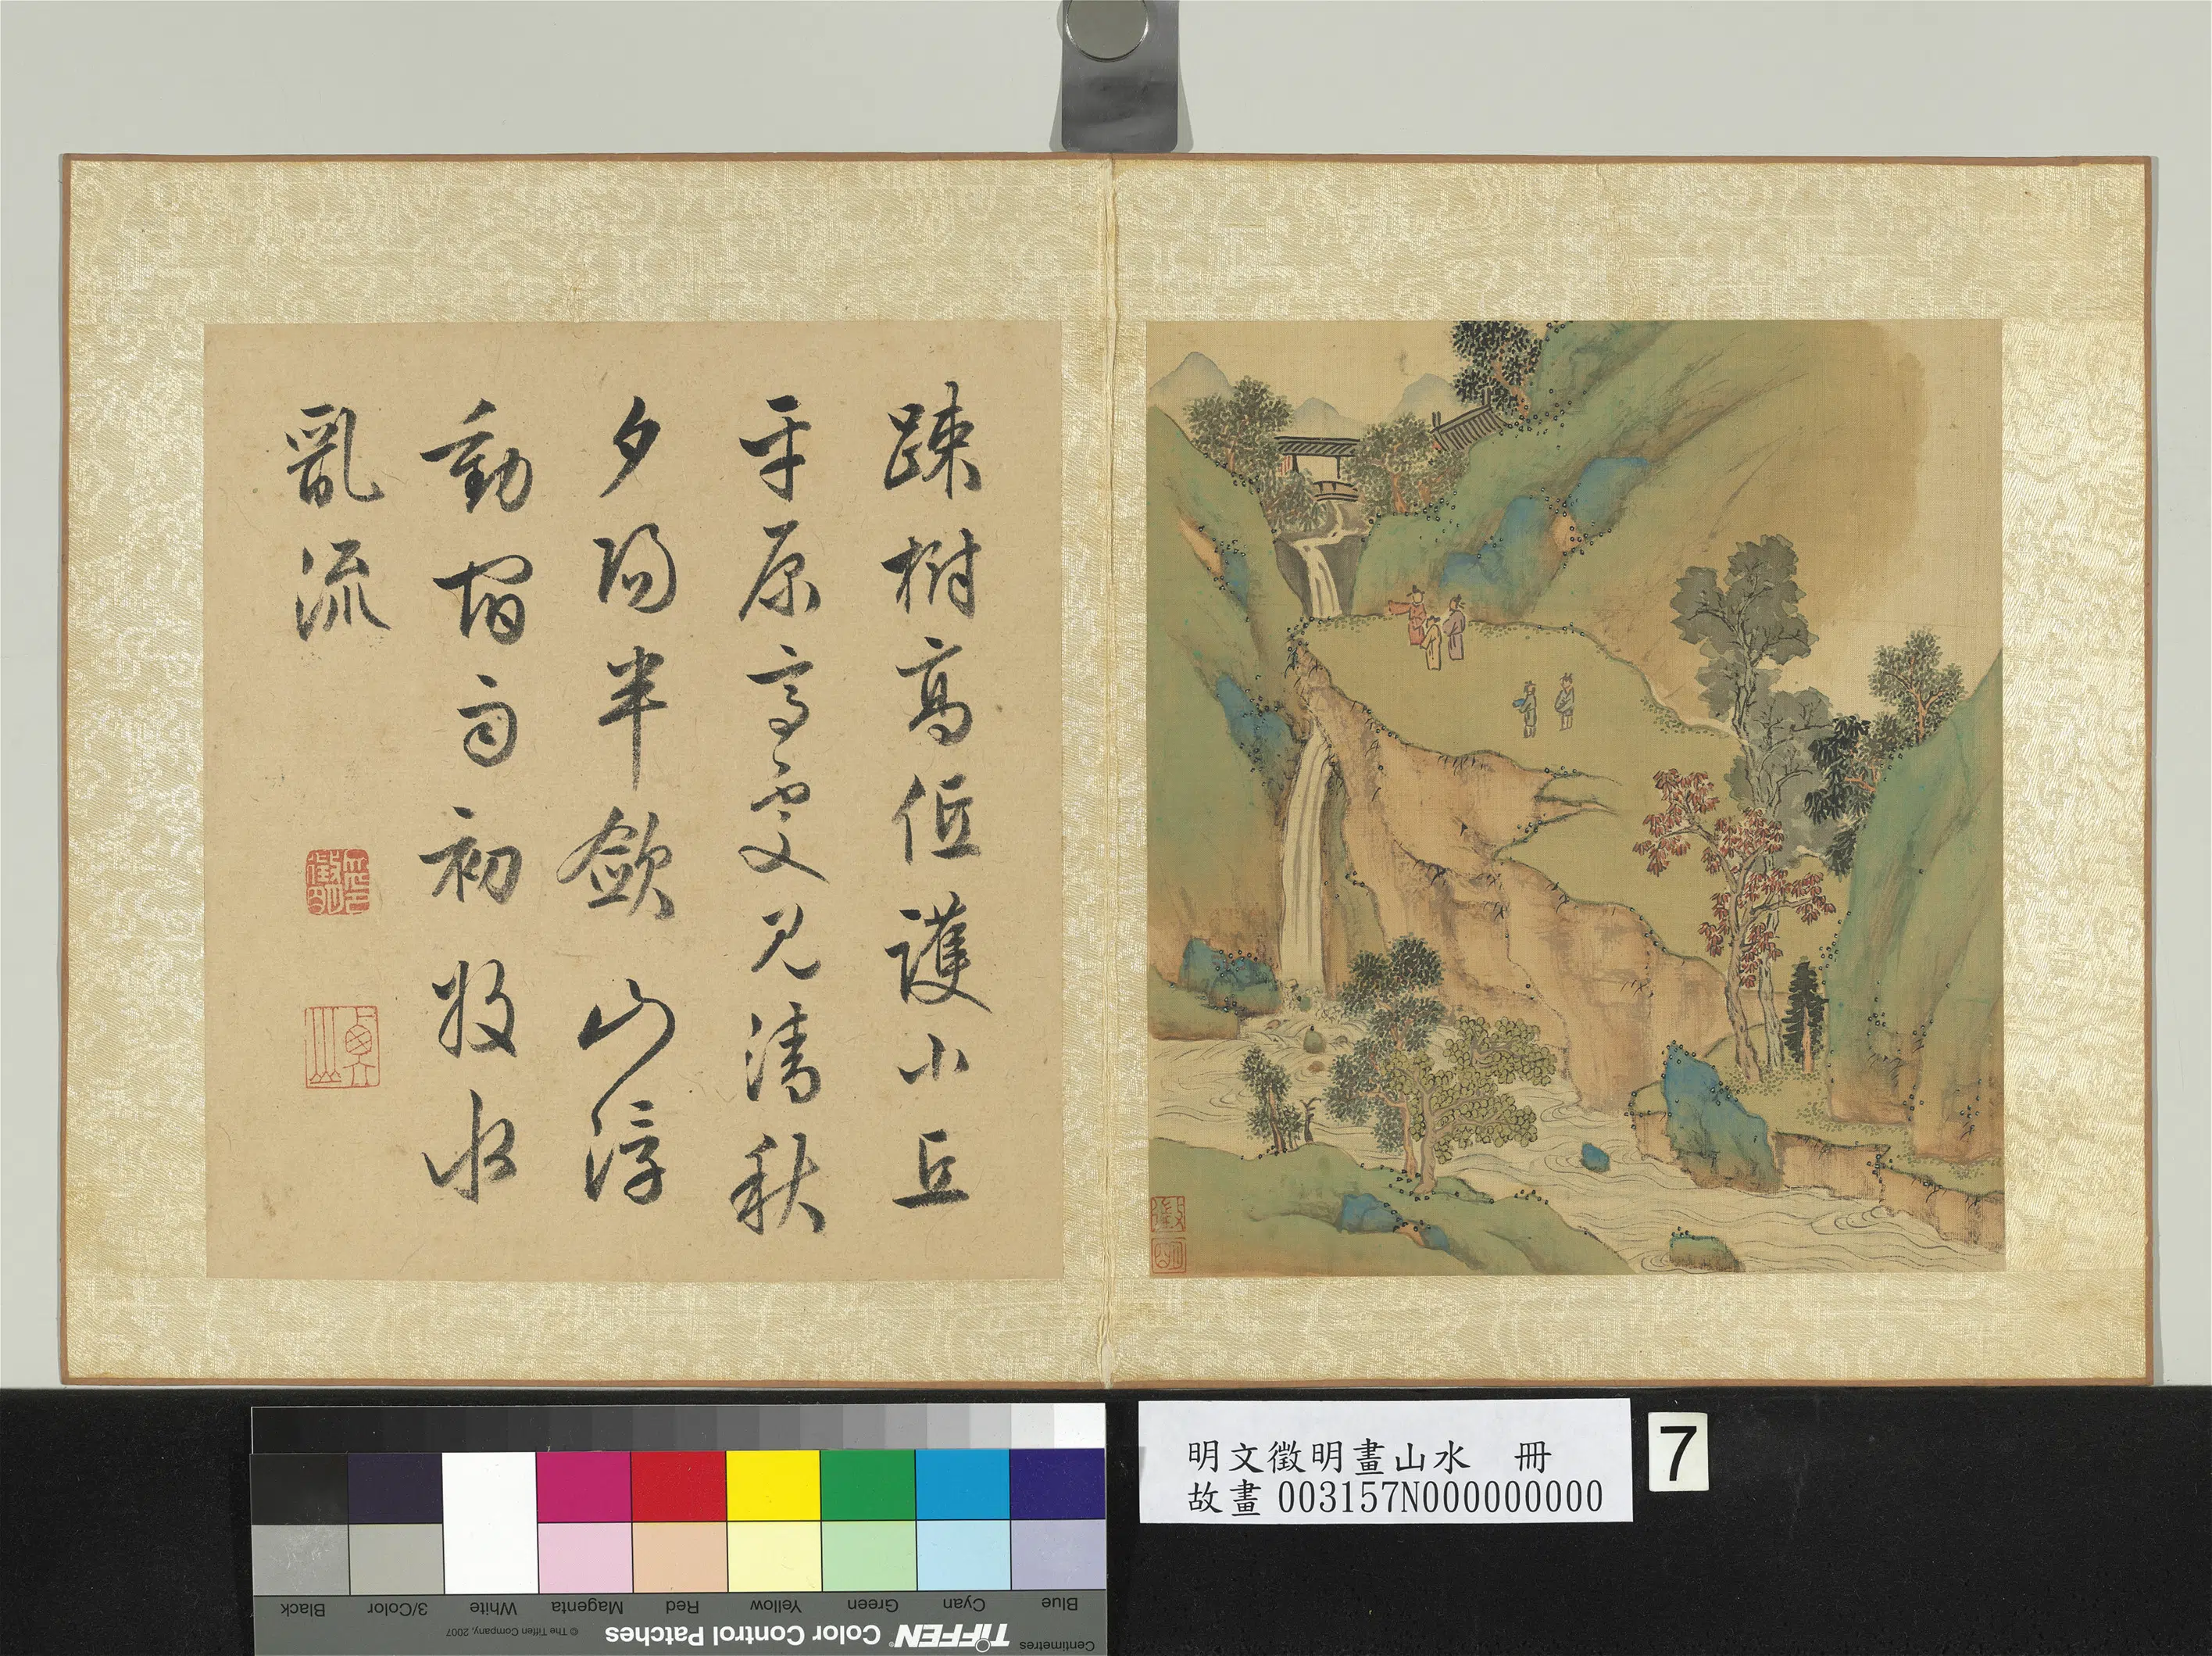 踈樹高低護小丘
平原高處見清秋
夕陽半歛山浮
動宿雨初收水
亂流
徵明
衡山
徵
明
明文徵明畫山水 冊
故畫 003157N000000000
7
Black 3/Color White Magenta Red Yellow Green Cyan Blue
© The Tiffen Company, 2007
TIFFEN® Color Control Patches
Centimetres